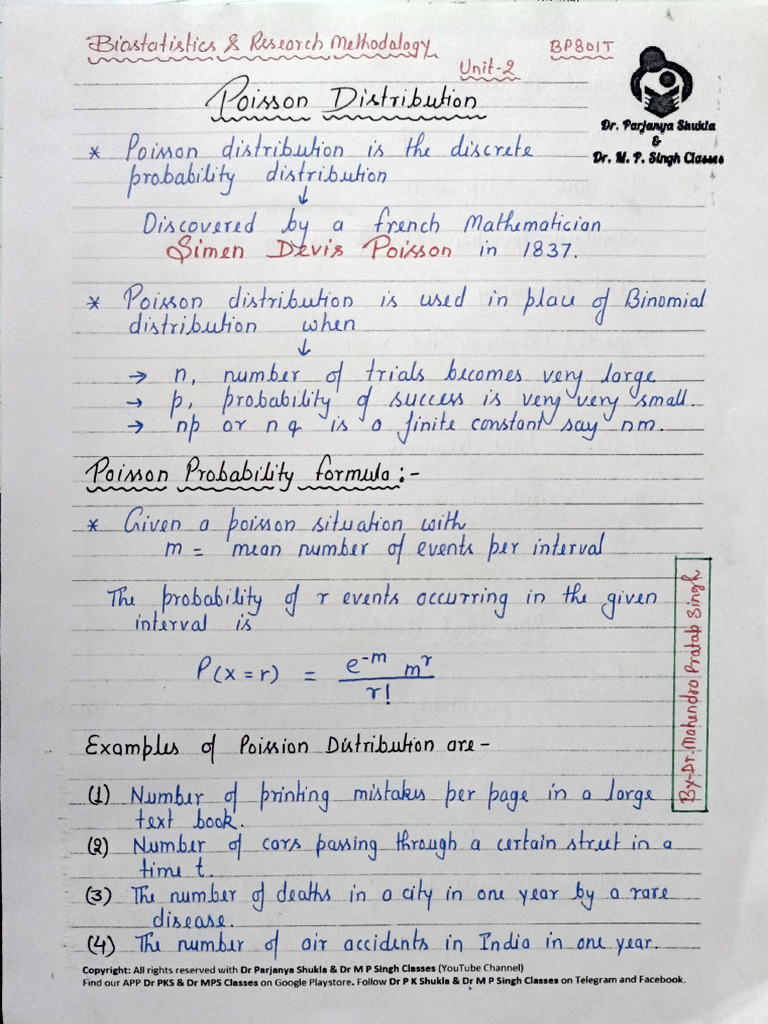 Biostatistics & Research Methodology BP801T
Unit-2
Poisson Distribution
Dr. Parjanya Shukla
&
Dr. M. P. Singh Classes
* Poisson distribution is the discrete
probability distribution
↓
Discovered by a french Mathematician
Simen Devis Poisson in 1837.
* Poisson distribution is used in place of Binomial
distribution when
↓
→ n, number of trials becomes very large
→ p, probability of success is very very small.
→ np or nq is a finite constant say nm.
Poisson Probability formula:-
* Given a poisson situation with
m = mean number of events per interval
The probability of r events occurring in the given
interval is
P(x=r) = e^-m m^r / r!
By-Dr. Mahendra Pratap Singh
Examples of Poission Distribution are-
(1) Number of printing mistakes per page in a large
text book.
(2) Number of cars passing through a certain street in a
time t.
(3) The number of deaths in a city in one year by a rare
disease.
(4) The number of air accidents in India in one year.
Copyright: All rights reserved with Dr Parjanya Shukla & Dr M P Singh Classes (YouTube Channel)
Find our APP Dr PKS & Dr MPS Classes on Google Playstore. Follow Dr P K Shukla & Dr M P Singh Classes on Telegram and Facebook.